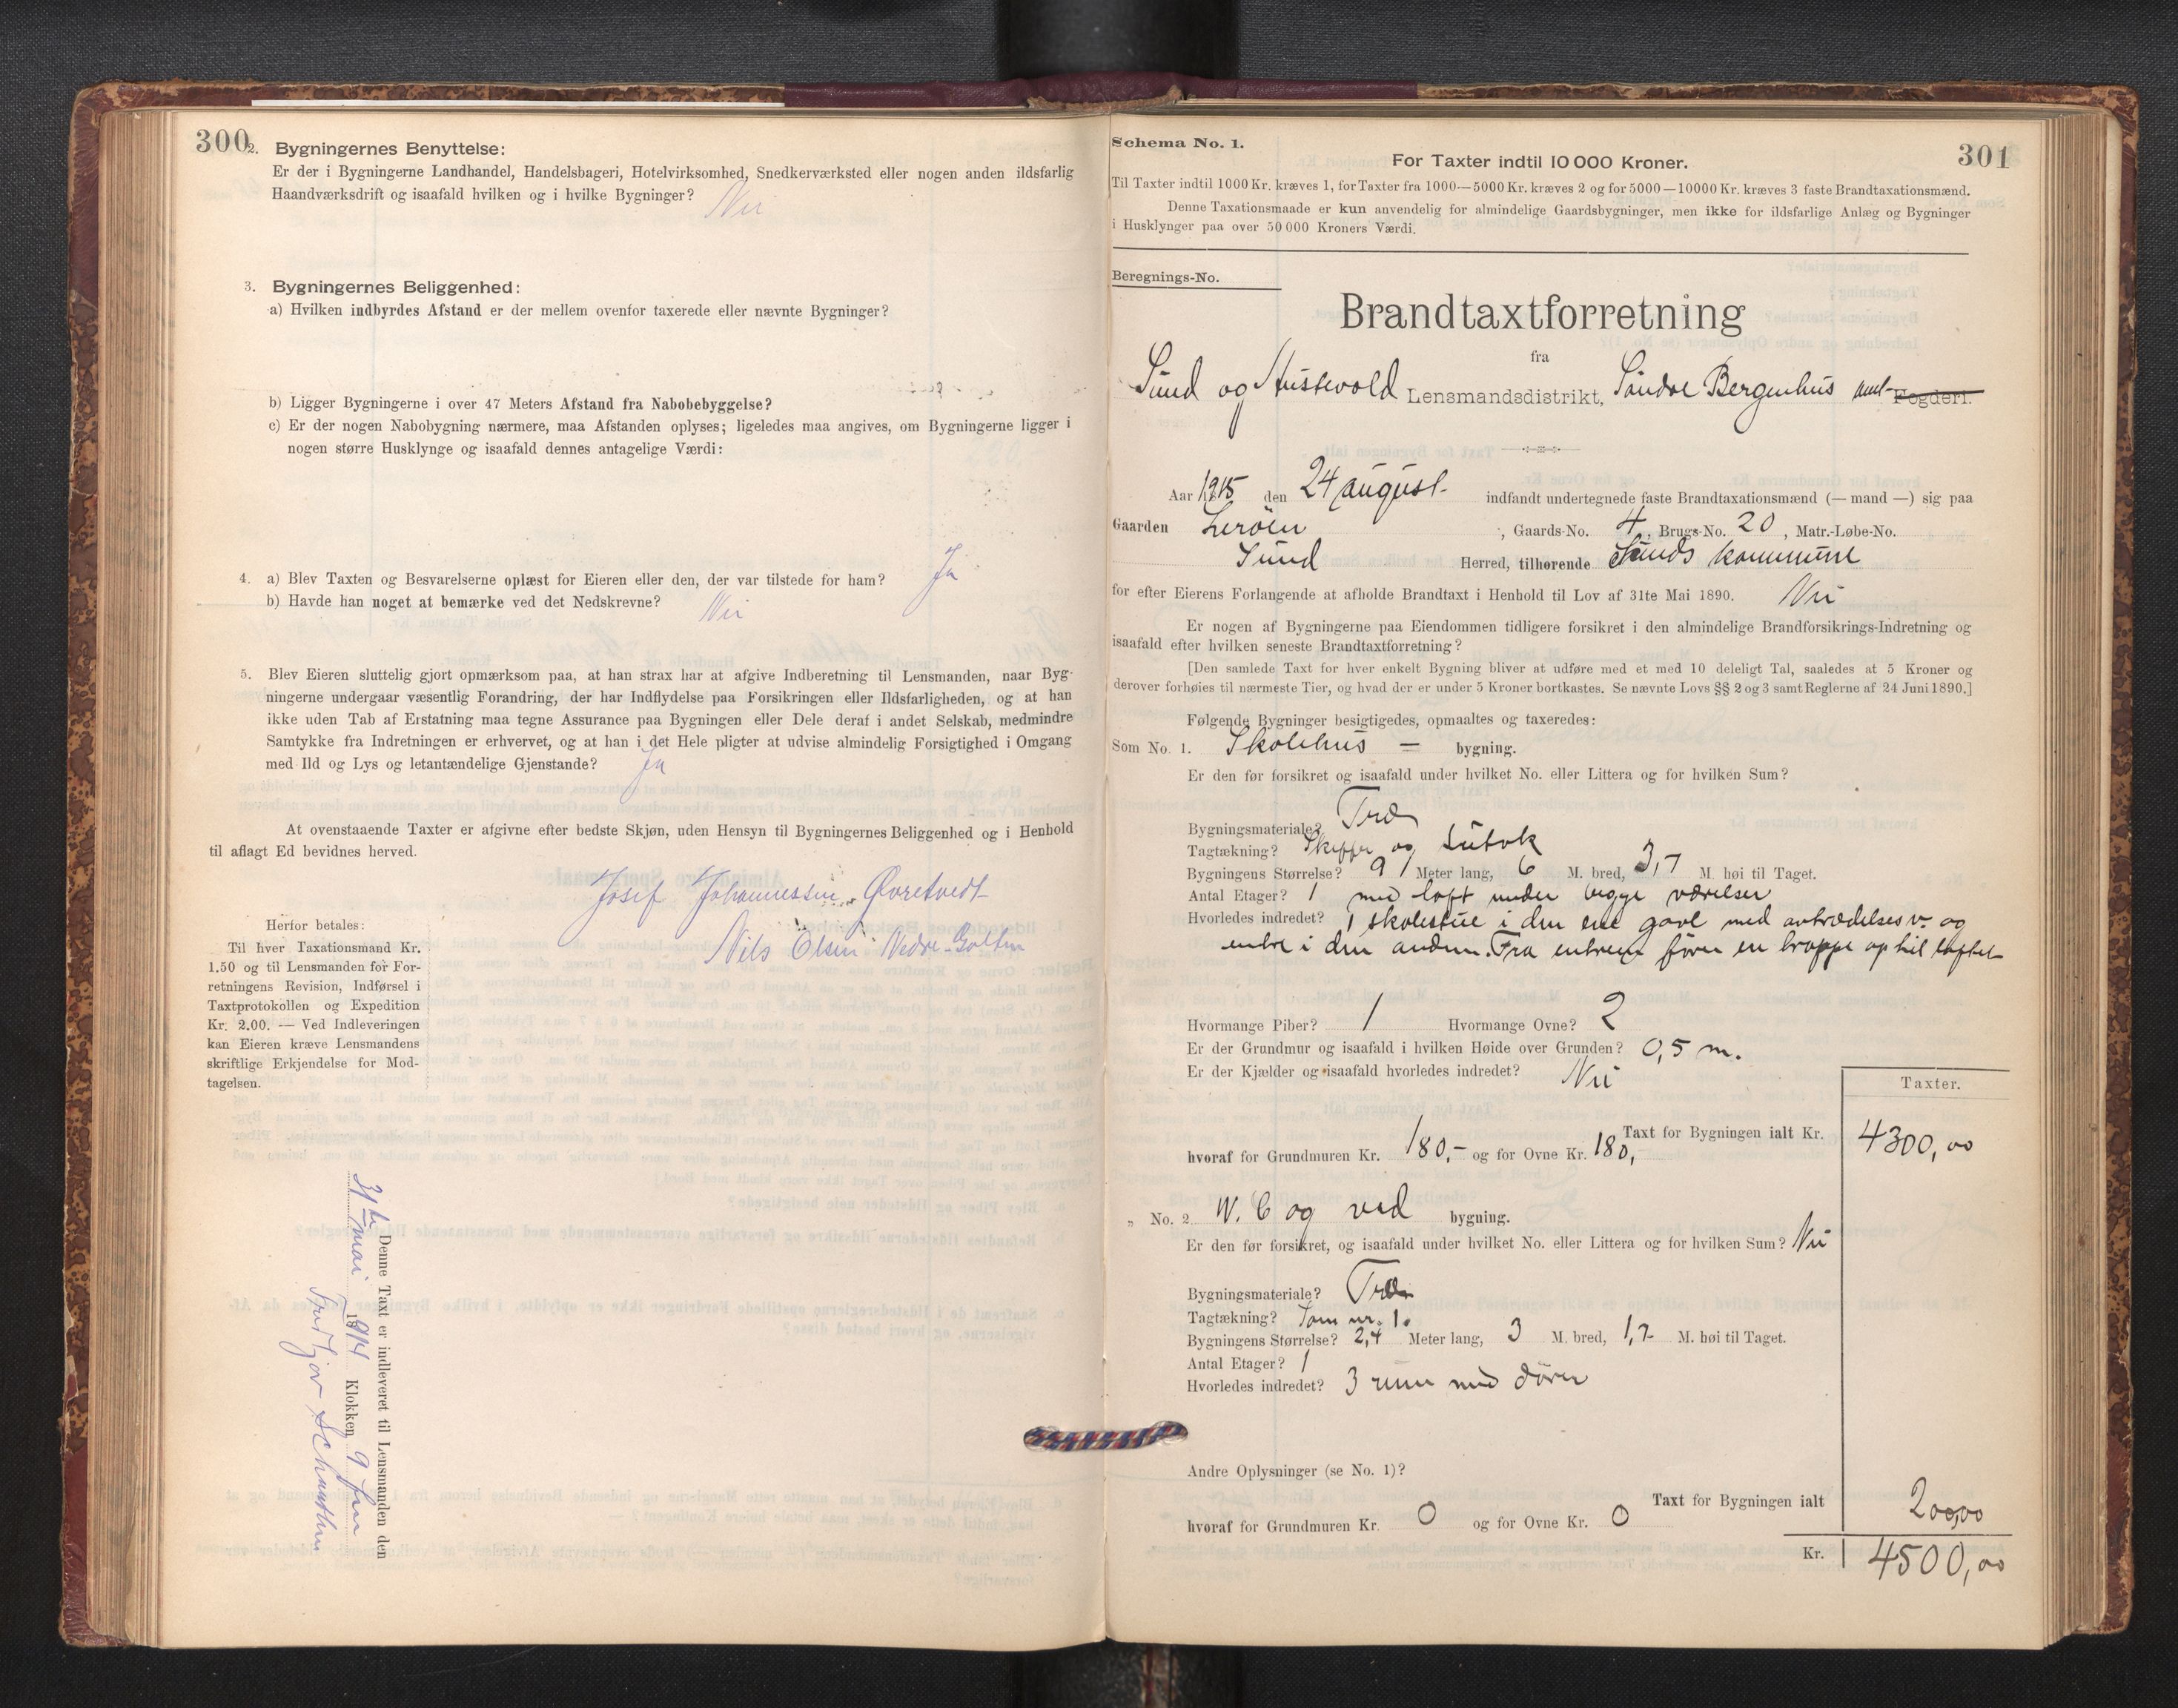 300
2. Bygningernes Benyttelse:
Er der i Bygningerne Landhandel, Handelsbageri, Hotelvirksomhed, Snedkerværksted eller nogen anden ildsfarlig
Haandværksdrift og isaafald hvilken og i hvilke Bygninger? Nei
3. Bygningernes Beliggenhed:
a) Hvilken indbyrdes Afstand er der mellem ovenfor taxerede eller nævnte Bygninger?
b) Ligger Bygningerne i over 47 Meters Afstand fra Nabobebyggelse?
c) Er der nogen Nabobygning nærmere, maa Afstanden oplyses; ligeledes maa angives, om Bygningerne ligger i
nogen større Husklynge og isaafald dennes antagelige Værdi:
4. a) Blev Taxten og Besvarelserne oplæst for Eieren eller den, der var tilstede for ham? Ja
b) Havde han noget at bemærke ved det Nedskrevne? Nei
5. Blev Eieren sluttelig gjort opmærksom paa, at han strax har at afgive Indberetning til Lensmanden, naar Byg-
ningerne undergaar væsentlig Forandring, der har Indflydelse paa Forsikringen eller Ildsfarligheden, og at han
ikke uden Tab af Erstatning maa tegne Assurance paa Bygningen eller Dele deraf i andet Selskab, medmindre
Samtykke fra Indretningen er erhvervet, og at han i det Hele pligter at udvise almindelig Forsigtighed i Omgang
med Ild og Lys og letantændelige Gjenstande? Ja
At ovenstaaende Taxter er afgivne efter bedste Skjøn, uden Hensyn til Bygningernes Beliggenhed og i Henhold
til aflagt Ed bevidnes herved.
Josef Johannessen Øvretvedt
Nils Olsen Nedre-Golten
Herfor betales:
Til hver Taxationsmand Kr.
1.50 og til Lensmanden for For-
retningens Revision, Indførsel i
Taxtprotokollen og Expedition
Kr. 2.00. — Ved Indleveringen
kan Eieren kræve Lensmandens
skriftlige Erkjendelse for Mod-
tagelsen.
Denne Taxt er indleveret til Lensmanden den
31te mai 1914 Klokken 9 fm
301
Schema No. 1.
For Taxter indtil 10 000 Kroner.
Til Taxter indtil 1000 Kr. kræves 1, for Taxter fra 1000—5000 Kr. kræves 2 og for 5000—10000 Kr. kræves 3 faste Brandtaxationsmænd.
Denne Taxationsmaade er kun anvendelig for almindelige Gaardsbygninger, men ikke for ildsfarlige Anlæg og Bygninger
i Husklynger paa over 50 000 Kroners Værdi.
Beregnings-No.
Brandtaxtforretning
fra
Sund og Austevold Lensmandsdistrikt, Söndre Bergenhus amt Fogderi.
Aar 1915 den 24 august indfandt undertegnede faste Brandtaxationsmænd (— mand —) sig paa
Gaarden Leröen, Gaards-No. 4, Brugs-No. 20, Matr.-Løbe-No.
Sund Herred, tilhørende Sunds kommune
for efter Eierens Forlangende at afholde Brandtaxt i Henhold til Lov af 31te Mai 1890. Nei
Er nogen af Bygningerne paa Eiendommen tidligere forsikret i den almindelige Brandforsikrings-Indretning og
isaafald efter hvilken seneste Brandtaxtforretning?
[Den samlede Taxt for hver enkelt Bygning bliver at udføre med et med 10 deleligt Tal, saaledes at 5 Kroner og
derover forhøies til nærmeste Tier, og hvad der er under 5 Kroner bortkastes. Se nævnte Lovs §§ 2 og 3 samt Reglerne af 24 Juni 1890.]
Følgende Bygninger besigtigedes, opmaaltes og taxeredes:
Som No. 1. Skolehus — bygning.
Er den før forsikret og isaafald under hvilket No. eller Littera og for hvilken Sum?
Bygningsmateriale? Træ
Tagtækning? Skiffer og sutok
Bygningens Størrelse? 9 Meter lang, 6 M. bred, 3,7 M. høi til Taget.
Antal Etager? 1 med loft under begge værelser
Hvorledes indredet? 1 skolestue i den ene gavl med avtrædelsesv. og
entre i den anden. Fra entreen fører en trappe op til loftet
Hvormange Piber? 1 Hvormange Ovne? 2
Er der Grundmur og isaafald i hvilken Høide over Grunden? 0,5 m.
Er der Kjælder og isaafald hvorledes indredet? Nei
Taxter.
Taxt for Bygningen ialt Kr. 4300,00
hvoraf for Grundmuren Kr. 180,- og for Ovne Kr. 180,
„ No. 2 W. C og ved bygning.
Er den før forsikret, og isaafald under hvilket No. eller Littera og for hvilken Sum? Nei
Bygningsmateriale? Træ
Tagtækning? Som nr. 1.
Bygningens Størrelse? 2,4 Meter lang, 3 M. bred, 1,7 M. høi til Taget.
Antal Etager? 1
Hvorledes indredet? 3 rum med dörer
Andre Oplysninger (se No. 1)?
Taxt for Bygningen ialt 200,00
hvoraf for Grundmuren Kr. 0 og for Ovne Kr. 0
Kr. 4500,00